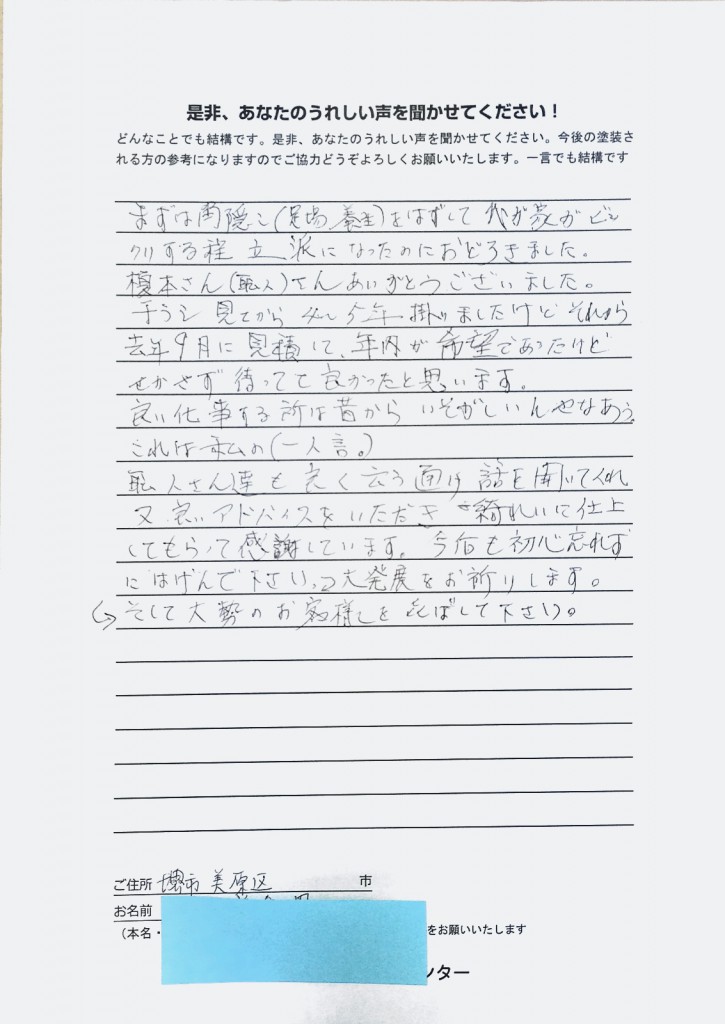 是非、あなたのうれしい声を聞かせてください！
どんなことでも結構です。是非、あなたのうれしい声を聞かせてください。今後の塗装さ
れる方の参考になりますのでご協力どうぞよろしくお願いいたします。一言でも結構です
まずは目隠し(足場 養生)をはずして 我が家がビッ
クリする程 立派になったのにおどろきました。
榎本さん(職人)さんありがとうございました。
チラシ 見てから 掛りましたけど それから
去年9月に見積して、年内が希望であったけど
せかさず待ってて良かったと思います。
良い仕事する所は昔から いそがしいんやなあぅ
これは私の(一人言。)
職人さん達も良く云う 話を聞いてくれ
又良いアドバイスをいただき 綺れいに仕上
してもらって感謝しています。今后も初心忘れず
にはげんで下さい。大発展をお祈りします。
→そして大勢のお客様を喜ばして下さい。
ご住所 堺市 美原区 市
お名前
（本名・
をお願いいたします
ンター